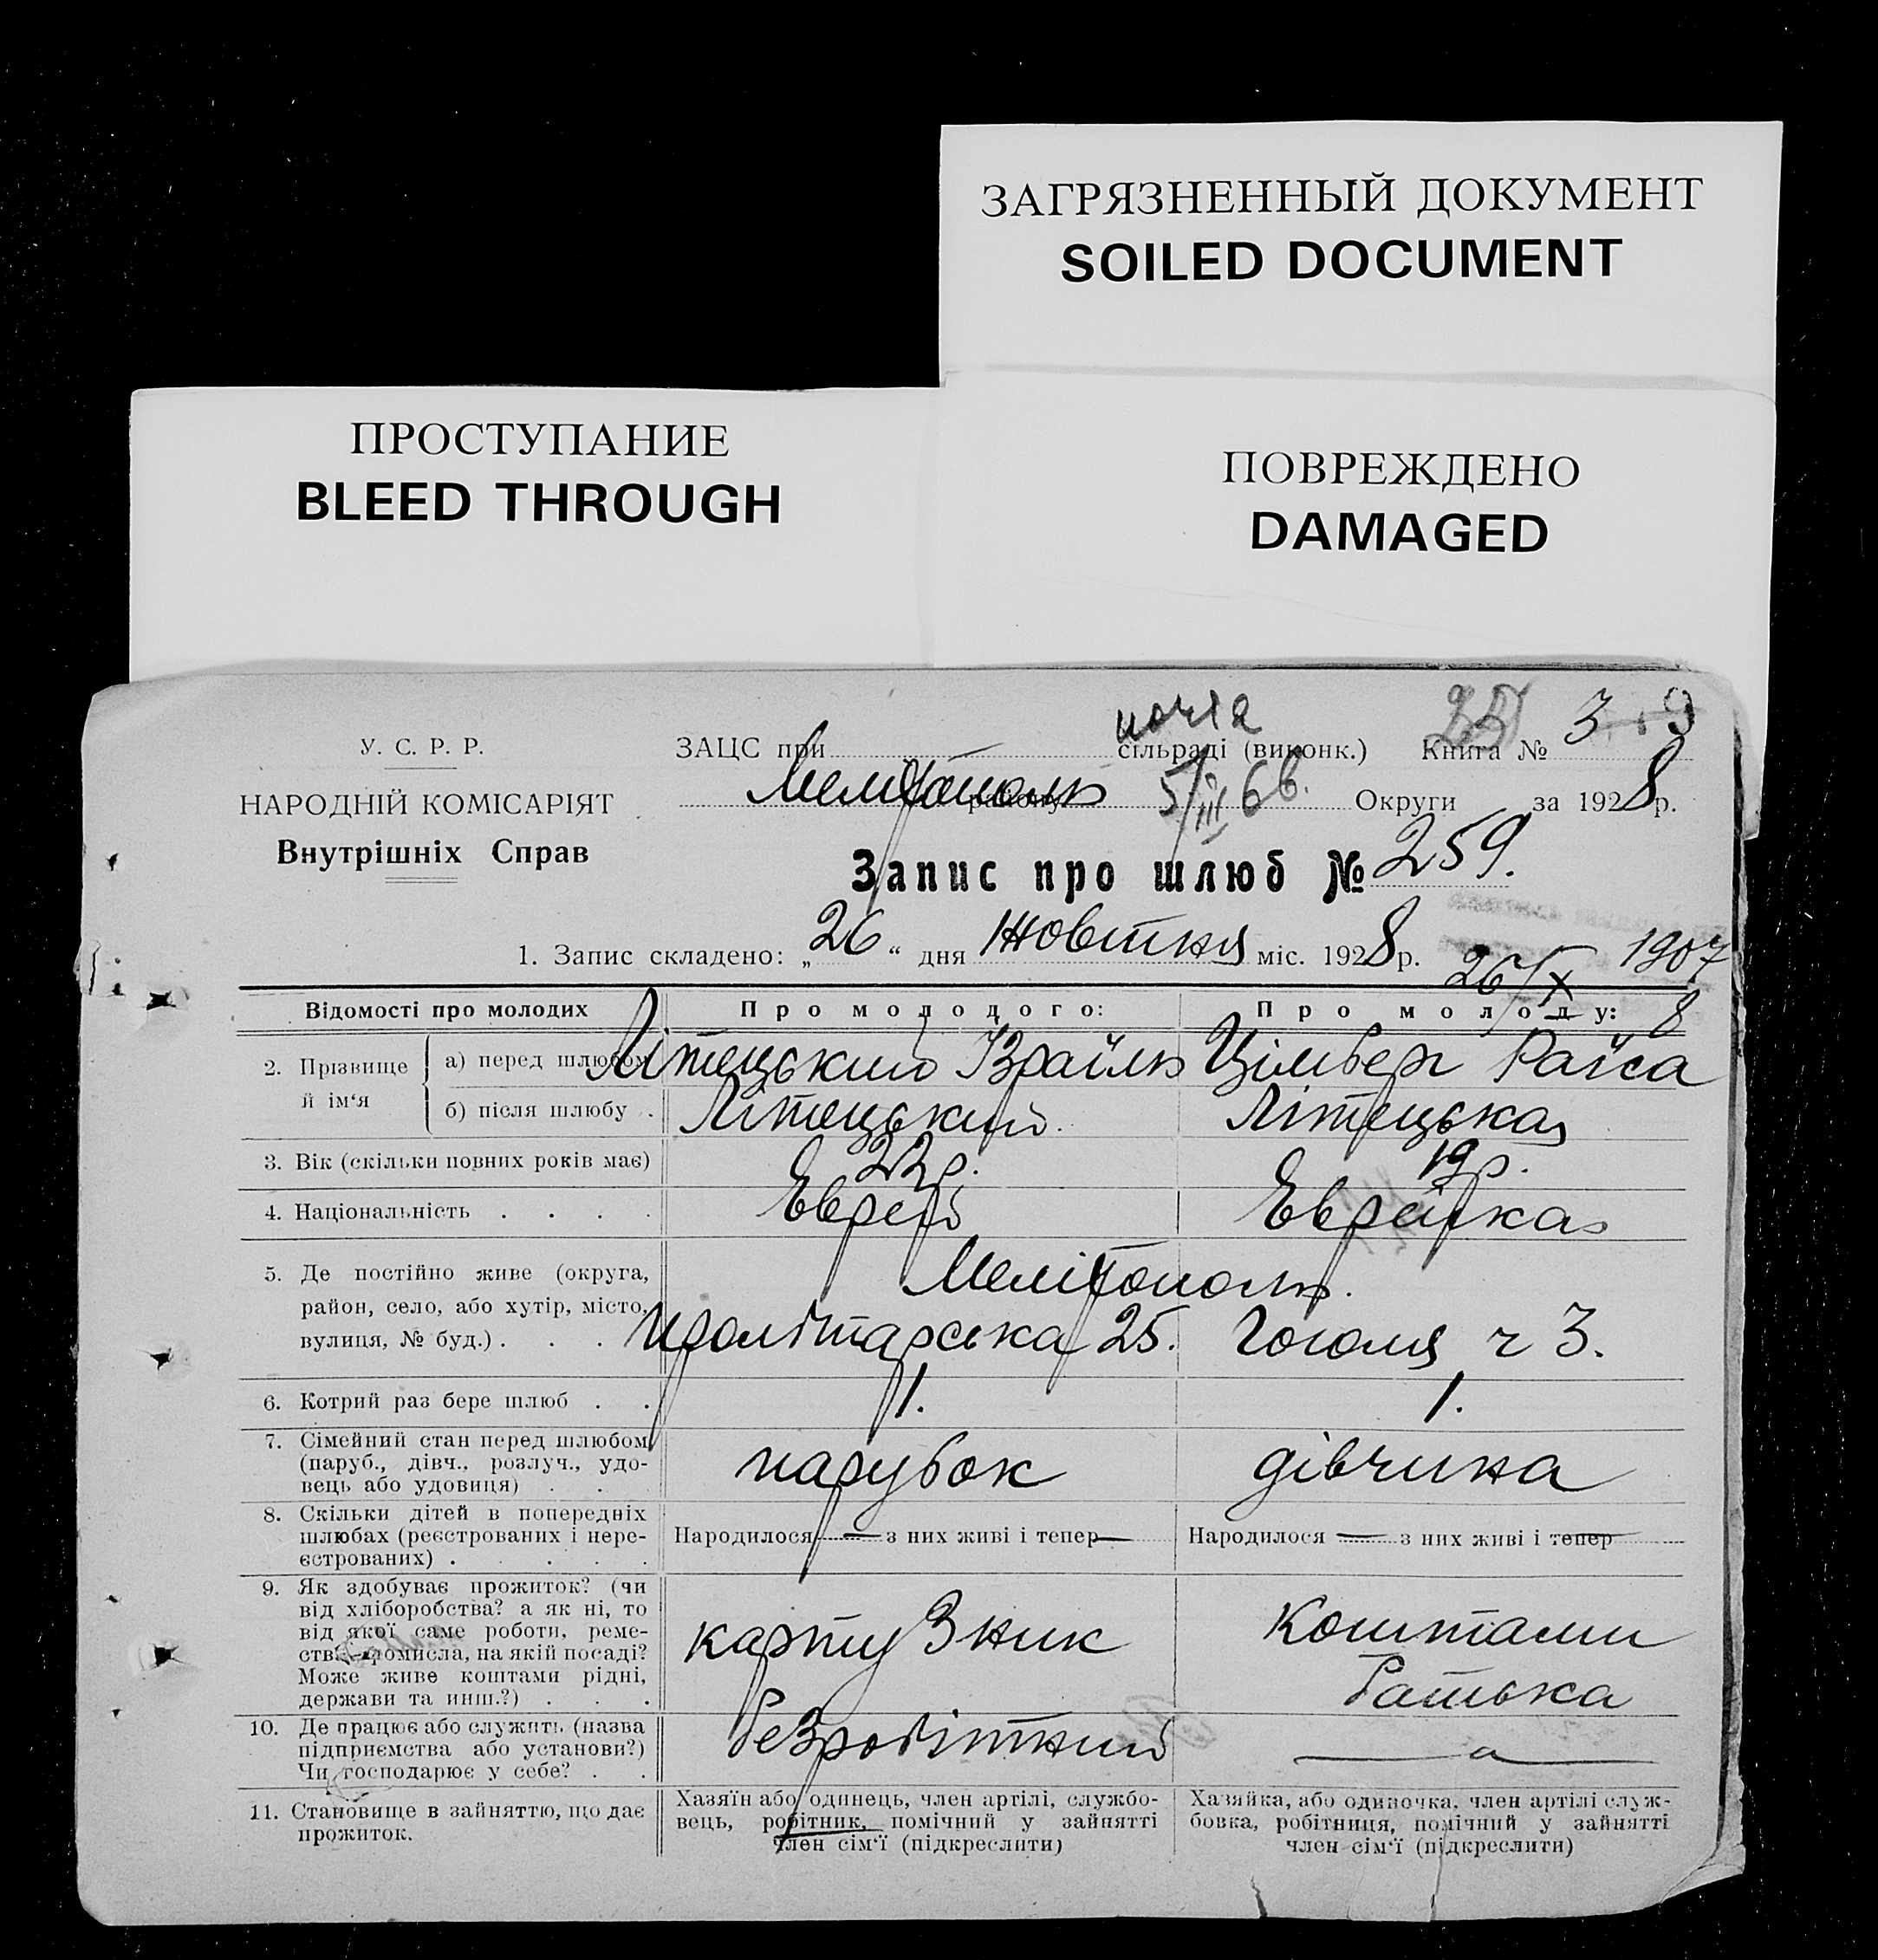 ЗАГРЯЗНЕННЫЙ ДОКУМЕНТ
SOILED DOCUMENT
ПРОСТУПАНИЕ
BLEED THROUGH
ПОВРЕЖДЕНО
DAMAGED
У. С. Р. Р.
НАРОДНІЙ КОМІСАРІЯТ
Внутрішніх Справ
ЗАЦС при сільраді (виконк.) Книга № 3
Мелітополь району 5/III 6 Округи за 1928 р.
Запис про шлюб № 259.
1. Запис складено: „26“ дня Жовтня міс. 1928 р.
26/X 1907
8
Відомості про молодих Про молодого: Про молоду:
2. Прізвище й ім‘я
а) перед шлюбом Літецький Ізраїль Цімберг Раїса
б) після шлюбу . Літецький. Літецька
3. Вік (скільки повних років має) 22 р. 19 р.
4. Національність . . . . Еврей Еврейка
5. Де постійно живе (округа, Мелітополь.
район, село, або хутір, місто,
вулиця, № буд.) . . . Пролітарська 25. Гоголя ч 3.
6. Котрий раз бере шлюб . . 1. 1.
7. Сімейний стан перед шлюбом
(паруб., дівч., розлуч., удо-
вець або удовиця) . . парубок дівчина
8. Скільки дітей в попередніх
шлюбах (реєстрованих і нере- Народилося — з них живі і тепер — Народилося — з них живі і тепер
єстрованих) . . . . .
9. Як здобуває прожиток? (чи
від хліборобства? а як ні, то
від якої саме роботи, реме- картузник коштами
ства, промисла, на якій посаді?
Може живе коштами рідні, Батька
держави та инш.?) . . .
10. Де працює або служить (назва
підприємства або установи?) безробітний —
Чи господарює у себе? . .
11. Становище в зайняттю, що дає
прожиток.
Хазяїн або одинець, член артілі, службо-
вець, робітник, помічний у зайнятті
член сім‘ї (підкреслити)
Хазяйка, або одиночка, член артілі служ-
бовка, робітниця, помічний у зайнятті
член сім‘ї (підкреслити)